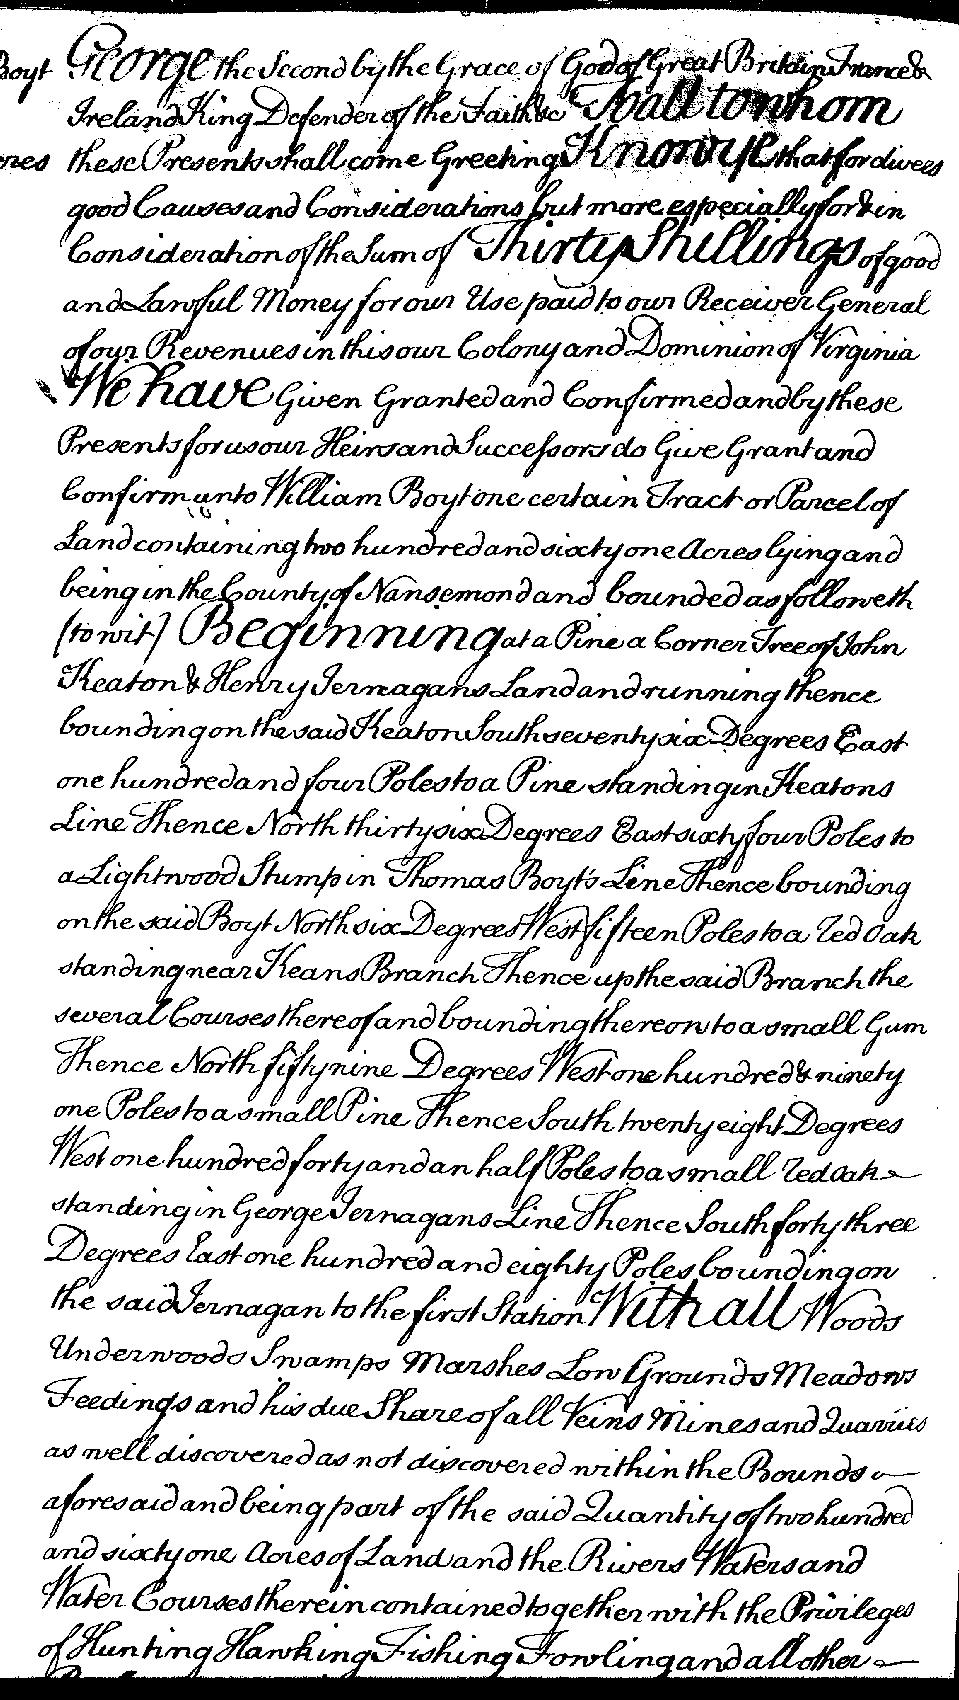 Boyt George the Second by the Grace of God of Great Britain France &
Ireland King Defender of the Faith &c To all to whom
these Presents shall come Greeting Know ye that for divers
good Causes and Considerations but more especially for & in
Consideration of the Sum of Thirty Shillings of good
and Lawful Money for our Use paid to our Receiver General
of our Revenues in this our Colony and Dominion of Virginia
We have Given Granted and Confirmed and by these
Presents for us our Heirs and Successors do Give Grant and
Confirm unto William Boyt one certain Tract or Parcel of
Land containing two hundred and sixty one Acres lying and
being in the County of Nansemond and bounded as followeth
(to wit) Beginning at a Pine a Corner Tree of John
Keaton & Henry Jernagans Land and running thence
bounding on the said Keaton South seventy six Degrees East
one hundred and four Poles to a Pine standing in Keatons
Line Thence North thirty six Degrees East sixty four Poles to
a Lightwood Stump in Thomas Boyt's Line Thence bounding
on the said Boyt North six Degrees West fifteen Poles to a Red Oak
standing near Keans Branch Thence up the said Branch the
several Courses thereof and bounding thereon to a small Gum
Thence North fifty nine Degrees West one hundred & ninety
one Poles to a small Pine Thence South twenty eight Degrees
West one hundred forty and an half Poles to a small Red Oak
standing in George Jernagans Line Thence South forty three
Degrees East one hundred and eighty Poles bounding on
the said Jernagan to the first Station With all Woods
Underwoods Swamps Marshes Low Grounds Meadows
Feedings and his due Share of all Veins Mines and Quarries
as well discovered as not discovered within the Bounds
aforesaid and being part of the said Quantity of two hundred
and sixty one Acres of Land and the Rivers Waters and
Water Courses therein contained together with the Privileges
of Hunting Hawking Fishing Fowling and all other